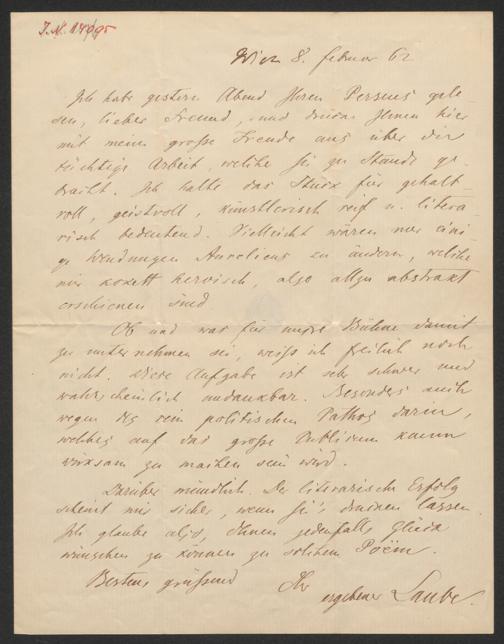 J.N. 17095
Wien 8. Februar 62
Ich habe gestern Abend Ihren Perseus gele
sen, lieber Freund, und drücke Ihnen hier
mit meine große Freude aus über die
tüchtige Arbeit, welche Sie zu Stande ge
bracht. Ich halte das Stück für gehalt
voll, geistvoll, künstlerisch reif u. litera
risch bedeutend. Vielleicht wären nur eini
ge Wendungen zu ändern, welche
mir kokett heroisch, also allzu abstrakt
erschienen sind.
Ob und was für unsre Bühne damit
zu unternehmen sei, weiß ich freilich noch
nicht. Diese Aufgabe ist sehr schwer und
wahrscheinlich undankbar. Besonders auch
wegen des rein politischen Pathos darin,
welches auf das große Publicum kaum
wirksam zu machen sein wird.
Darüber mündlich. Der literarische Erfolg
scheint mir sicher, wenn Sie's drucken lassen.
Ich glaube also, Ihnen jedenfalls Glück
wünschen zu können zu solchem Poëm.
Bestens grüßend
Ihr
ergebener Laube.